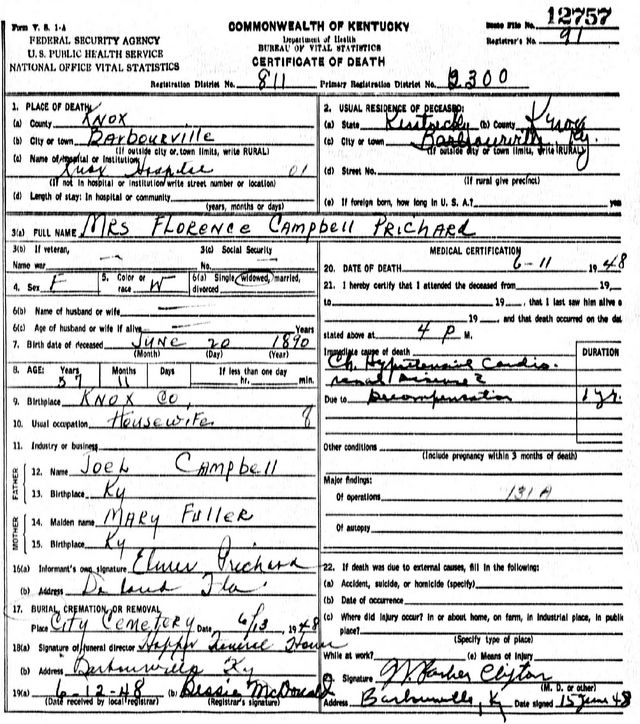 Form V. S. 1-A
FEDERAL SECURITY AGENCY
U. S. PUBLIC HEALTH SERVICE
NATIONAL OFFICE VITAL STATISTICS
COMMONWEALTH OF KENTUCKY
Department of Health
BUREAU OF VITAL STATISTICS
CERTIFICATE OF DEATH
State File No. 12757
Registrar's No. 91
Registration District No. 811 Primary Registration District No. 2300
1. PLACE OF DEATH
(a) County KNOX
(b) City or town Barbourville
(If outside city or town limits, write RURAL)
(c) Name of hospital or institution: Knox Hospital 01
(If not in hospital or institution write street number or location)
(d) Length of stay: In hospital or community
(years, months or days)
2. USUAL RESIDENCE OF DECEASED:
(a) State Kentucky (b) County Knox
(c) City or town Barbourville Ky.
(If outside city or town limits, write RURAL)
(d) Street No.
(If rural give precinct)
(e) If foreign born, how long in U. S. A.? ye
3(a) FULL NAME MRS FLORENCE Campbell PRICHARD
3(b) If veteran,
Name war
3(c) Social Security
No.
4. Sex F 5. Color or race W 6(a) Single, widowed, married, divorced
6(b) Name of husband or wife
6(c) Age of husband or wife if alive Years
7. Birth date of deceased JUNE 20 1890
(Month) (Day) (Year)
8. AGE: Years Months Days If less than one day
57 11 hr. min.
9. Birthplace KNOX CO,
10. Usual occupation Housewife 8
11. Industry or business
FATHER
12. Name JOEL CAMPBELL
13. Birthplace Ky
MOTHER
14. Maiden name MARY FULLER
15. Birthplace Ky
16(a) Informant's own signature Elmer Prichard
(b) Address De Land Fla.
17. BURIAL, CREMATION, OR REMOVAL
Place City Cemetery Date 6/13 1948
18(a) Signature of funeral director Hopper Funeral Home
(b) Address Barbourville Ky
19(a) 6-12-48 (b) Bessie McDonald
(Date received by local registrar) (Registrar's signature)
MEDICAL CERTIFICATION
20. DATE OF DEATH 6-11 1948
21. I hereby certify that I attended the deceased from 19
to 19 , that I last saw him alive o
19 , and that death occurred on the dat
stated above at 4 P M.
Immediate cause of death DURATION
Ch. Hypertensive Cardio-
renal Disease &
Due to Decompensation 1 yr.
Other conditions
(Include pregnancy within 3 months of death)
Major findings:
Of operations 131A
Of autopsy
22. If death was due to external causes, fill in the following:
(a) Accident, suicide, or homicide (specify)
(b) Date of occurrence
(c) Where did injury occur? In or about home, on farm, in industrial place, in public
place?
(Specify type of place)
While at work? (e) Means of injury
Signature Parker Clifton
(M. D. or other)
Address Barbourville, Ky Date signed 15 June 48